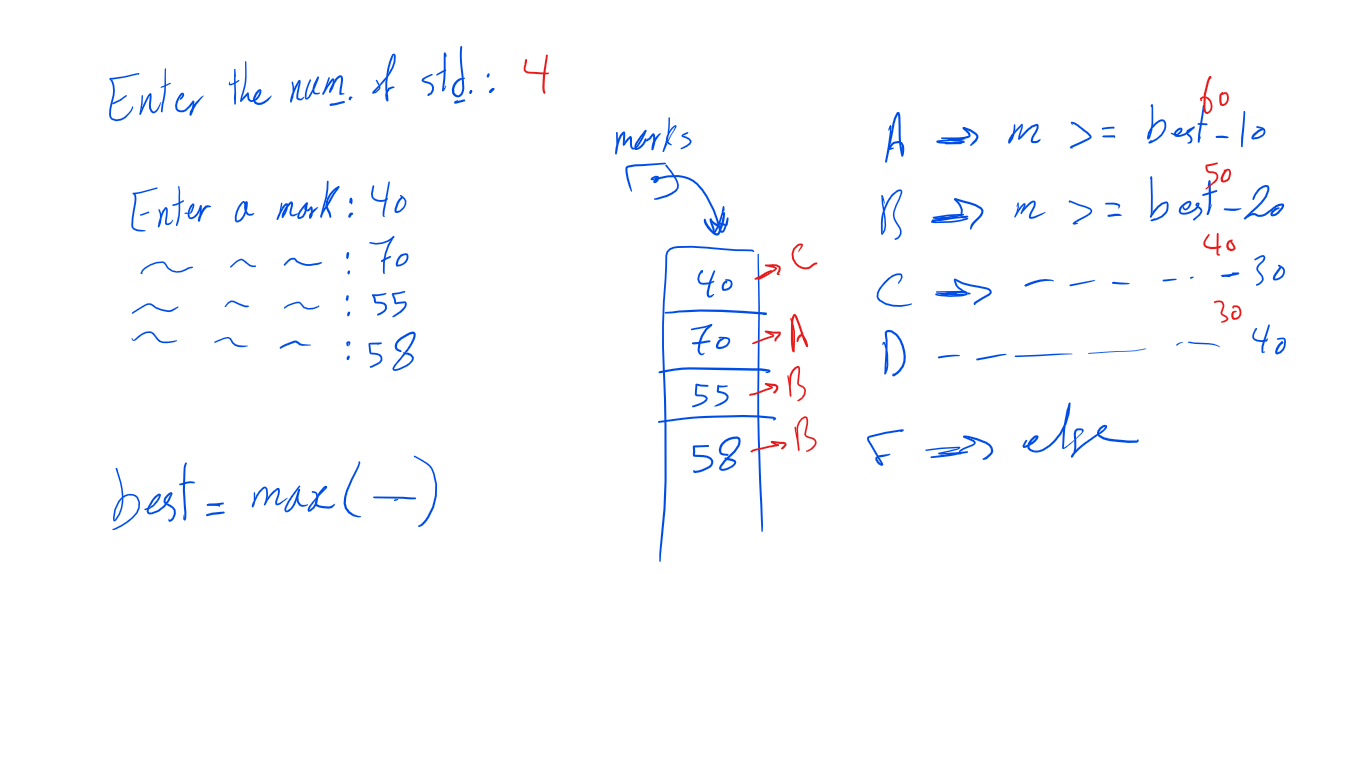 Enter the num. of std. : 4
Enter a mark : 40
~ ~ ~ : 70
~ ~ ~ : 55
~ ~ ~ : 58
best = max( — )
marks
40 → C
70 → A
55 → B
58 → B
60
A ⇒ m >= best - 10
50
B ⇒ m >= best - 20
40
C ⇒ - - - - - - 30
30
D - - — — - 40
F ⇒ else